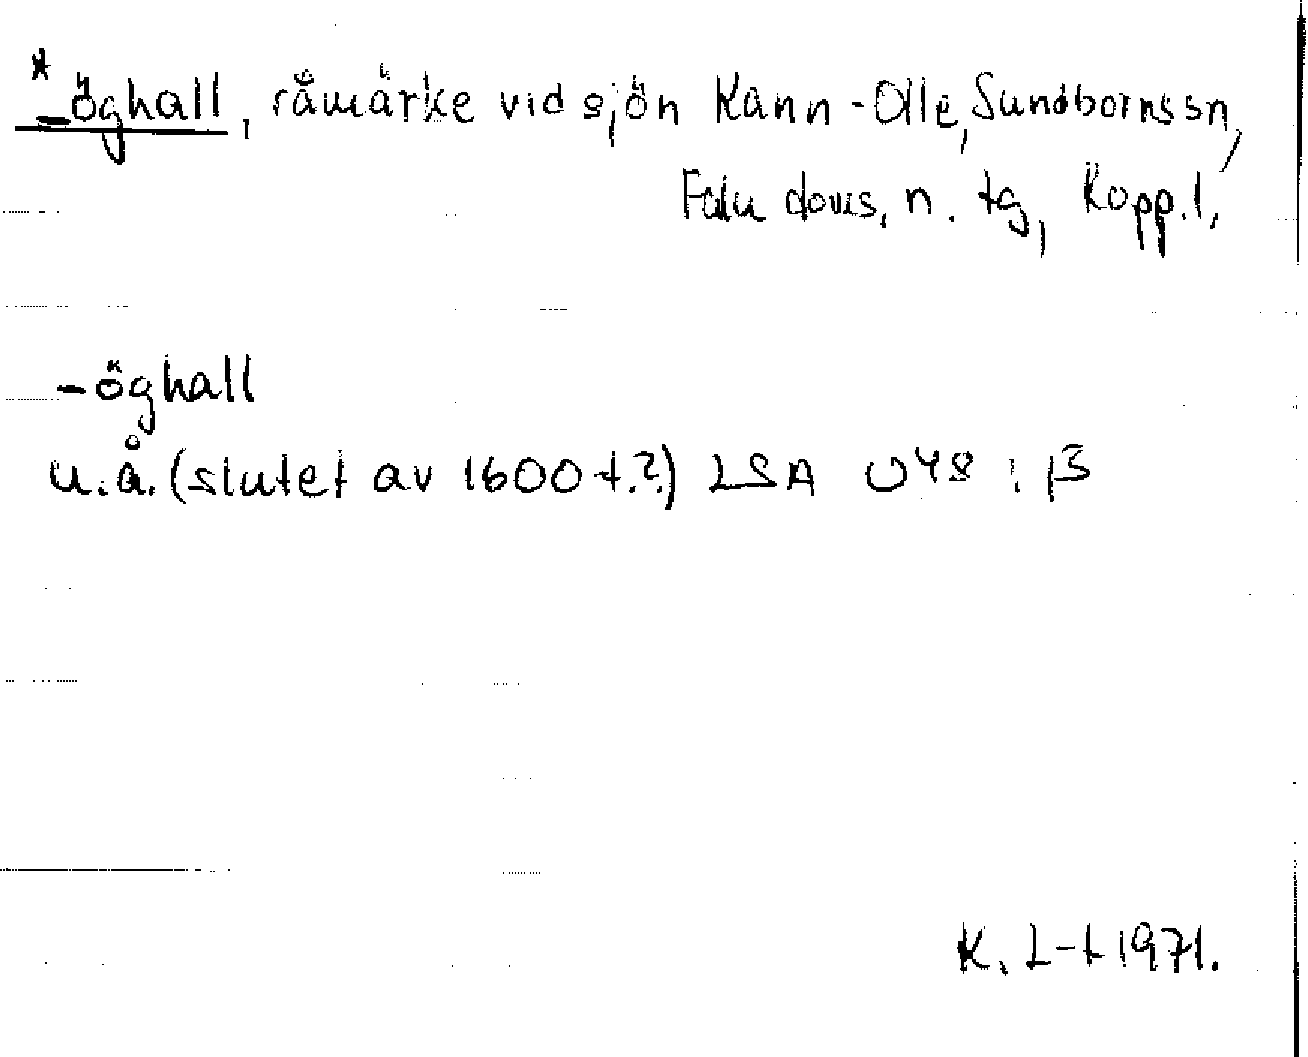 *-öghall, råmärke vid sjön Kann-Olle, Sundborns sn,
Falu doms. n. tg, Kopp. l.
-öghall
u.å. (slutet av 1600-t.?) LSA U48:13
K. L-t 1971.